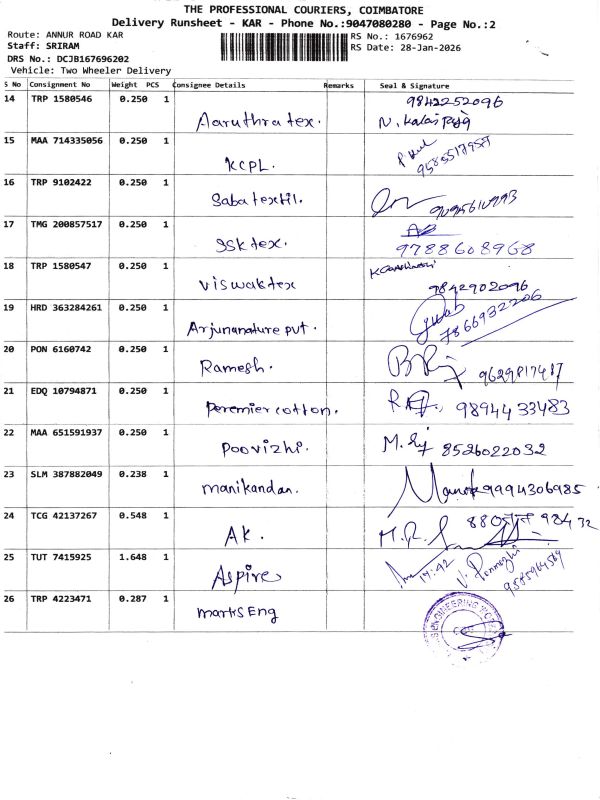 THE PROFESSIONAL COURIERS, COIMBATORE
Delivery Runsheet - KAR - Phone No.:9047080280 - Page No.:2
Route: ANNUR ROAD KAR
RS No.: 1676962
Staff: SRIRAM
RS Date: 28-Jan-2026
DRS No.: DCJB167696202
Vehicle: Two Wheeler Delivery
S No Consignment No Weight PCS Consignee Details Remarks Seal & Signature
14 TRP 1580546 0.250 1 Aaruthra tex. 9842252096
N. Kalai
15 MAA 714335056 0.250 1 KCPL.
16 TRP 9102422 0.250 1 Sabatextil.
17 TMG 200857517 0.250 1 gsk tex.
9788608968
18 TRP 1580547 0.250 1 viswaktex 9842902096
19 HRD 363284261 0.250 1 Arjunanature put. 7866932206
20 PON 6160742 0.250 1 Ramesh. 9629817487
21 EDQ 10794871 0.250 1 peremier cotton. 9894433483
22 MAA 651591937 0.250 1 poovizhi. 8526022032
23 SLM 387882049 0.238 1 manikandan. 9994306985
24 TCG 42137267 0.548 1 AK.
25 TUT 7415925 1.648 1 Aspire
26 TRP 4223471 0.287 1 marks Eng